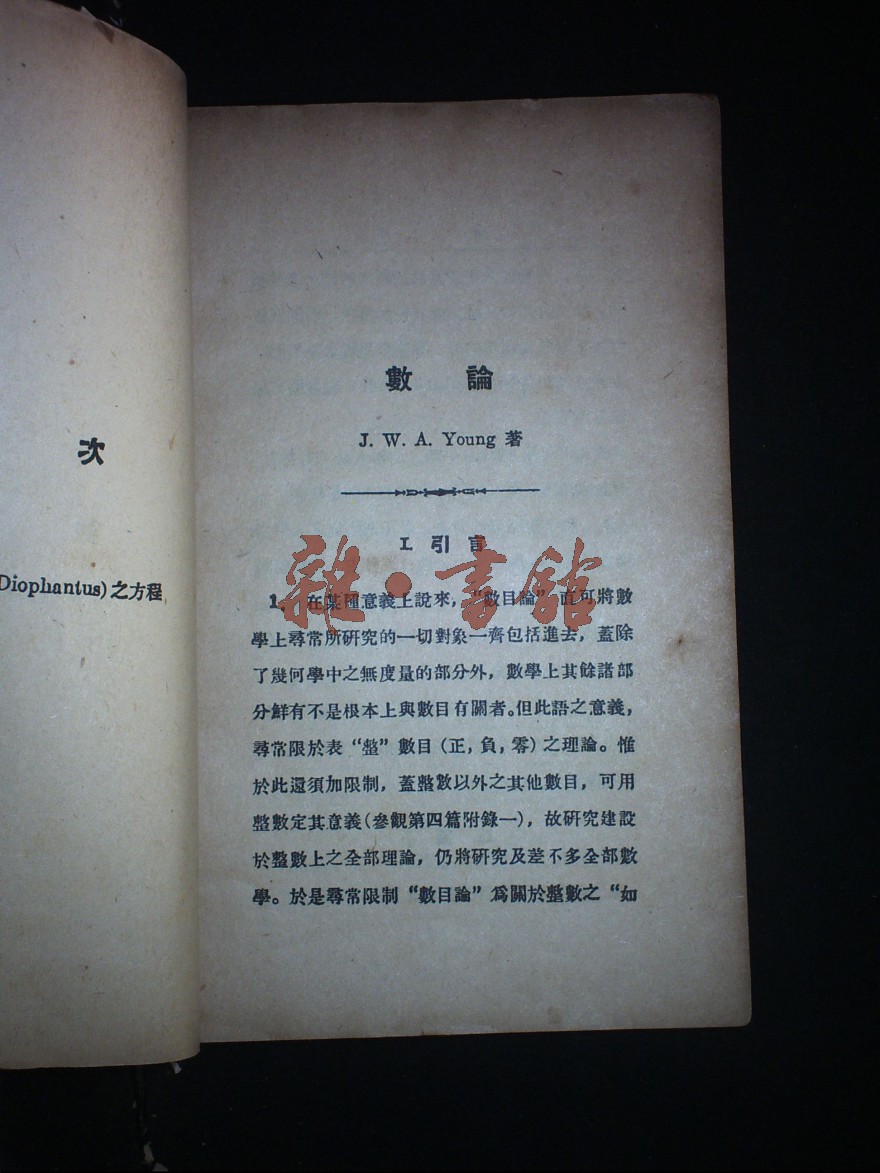 次
Diophantus)之方程
數論
J. W. A. Young 著
I. 引言
雜·書館
1. 在某種意義上說來，“數目論”直可將數
學上尋常所研究的一切對象一齊包括進去，蓋除
了幾何學中之無度量的部分外，數學上其餘諸部
分鮮有不是根本上與數目有關者。但此語之意義，
尋常限於表“整”數目（正，負，零）之理論。惟
於此還須加限制，蓋整數以外之其他數目，可用
整數定其意義（參觀第四篇附錄一），故研究建設
於整數上之全部理論，仍將研究及差不多全部數
學。於是尋常限制“數目論”爲關於整數之“如